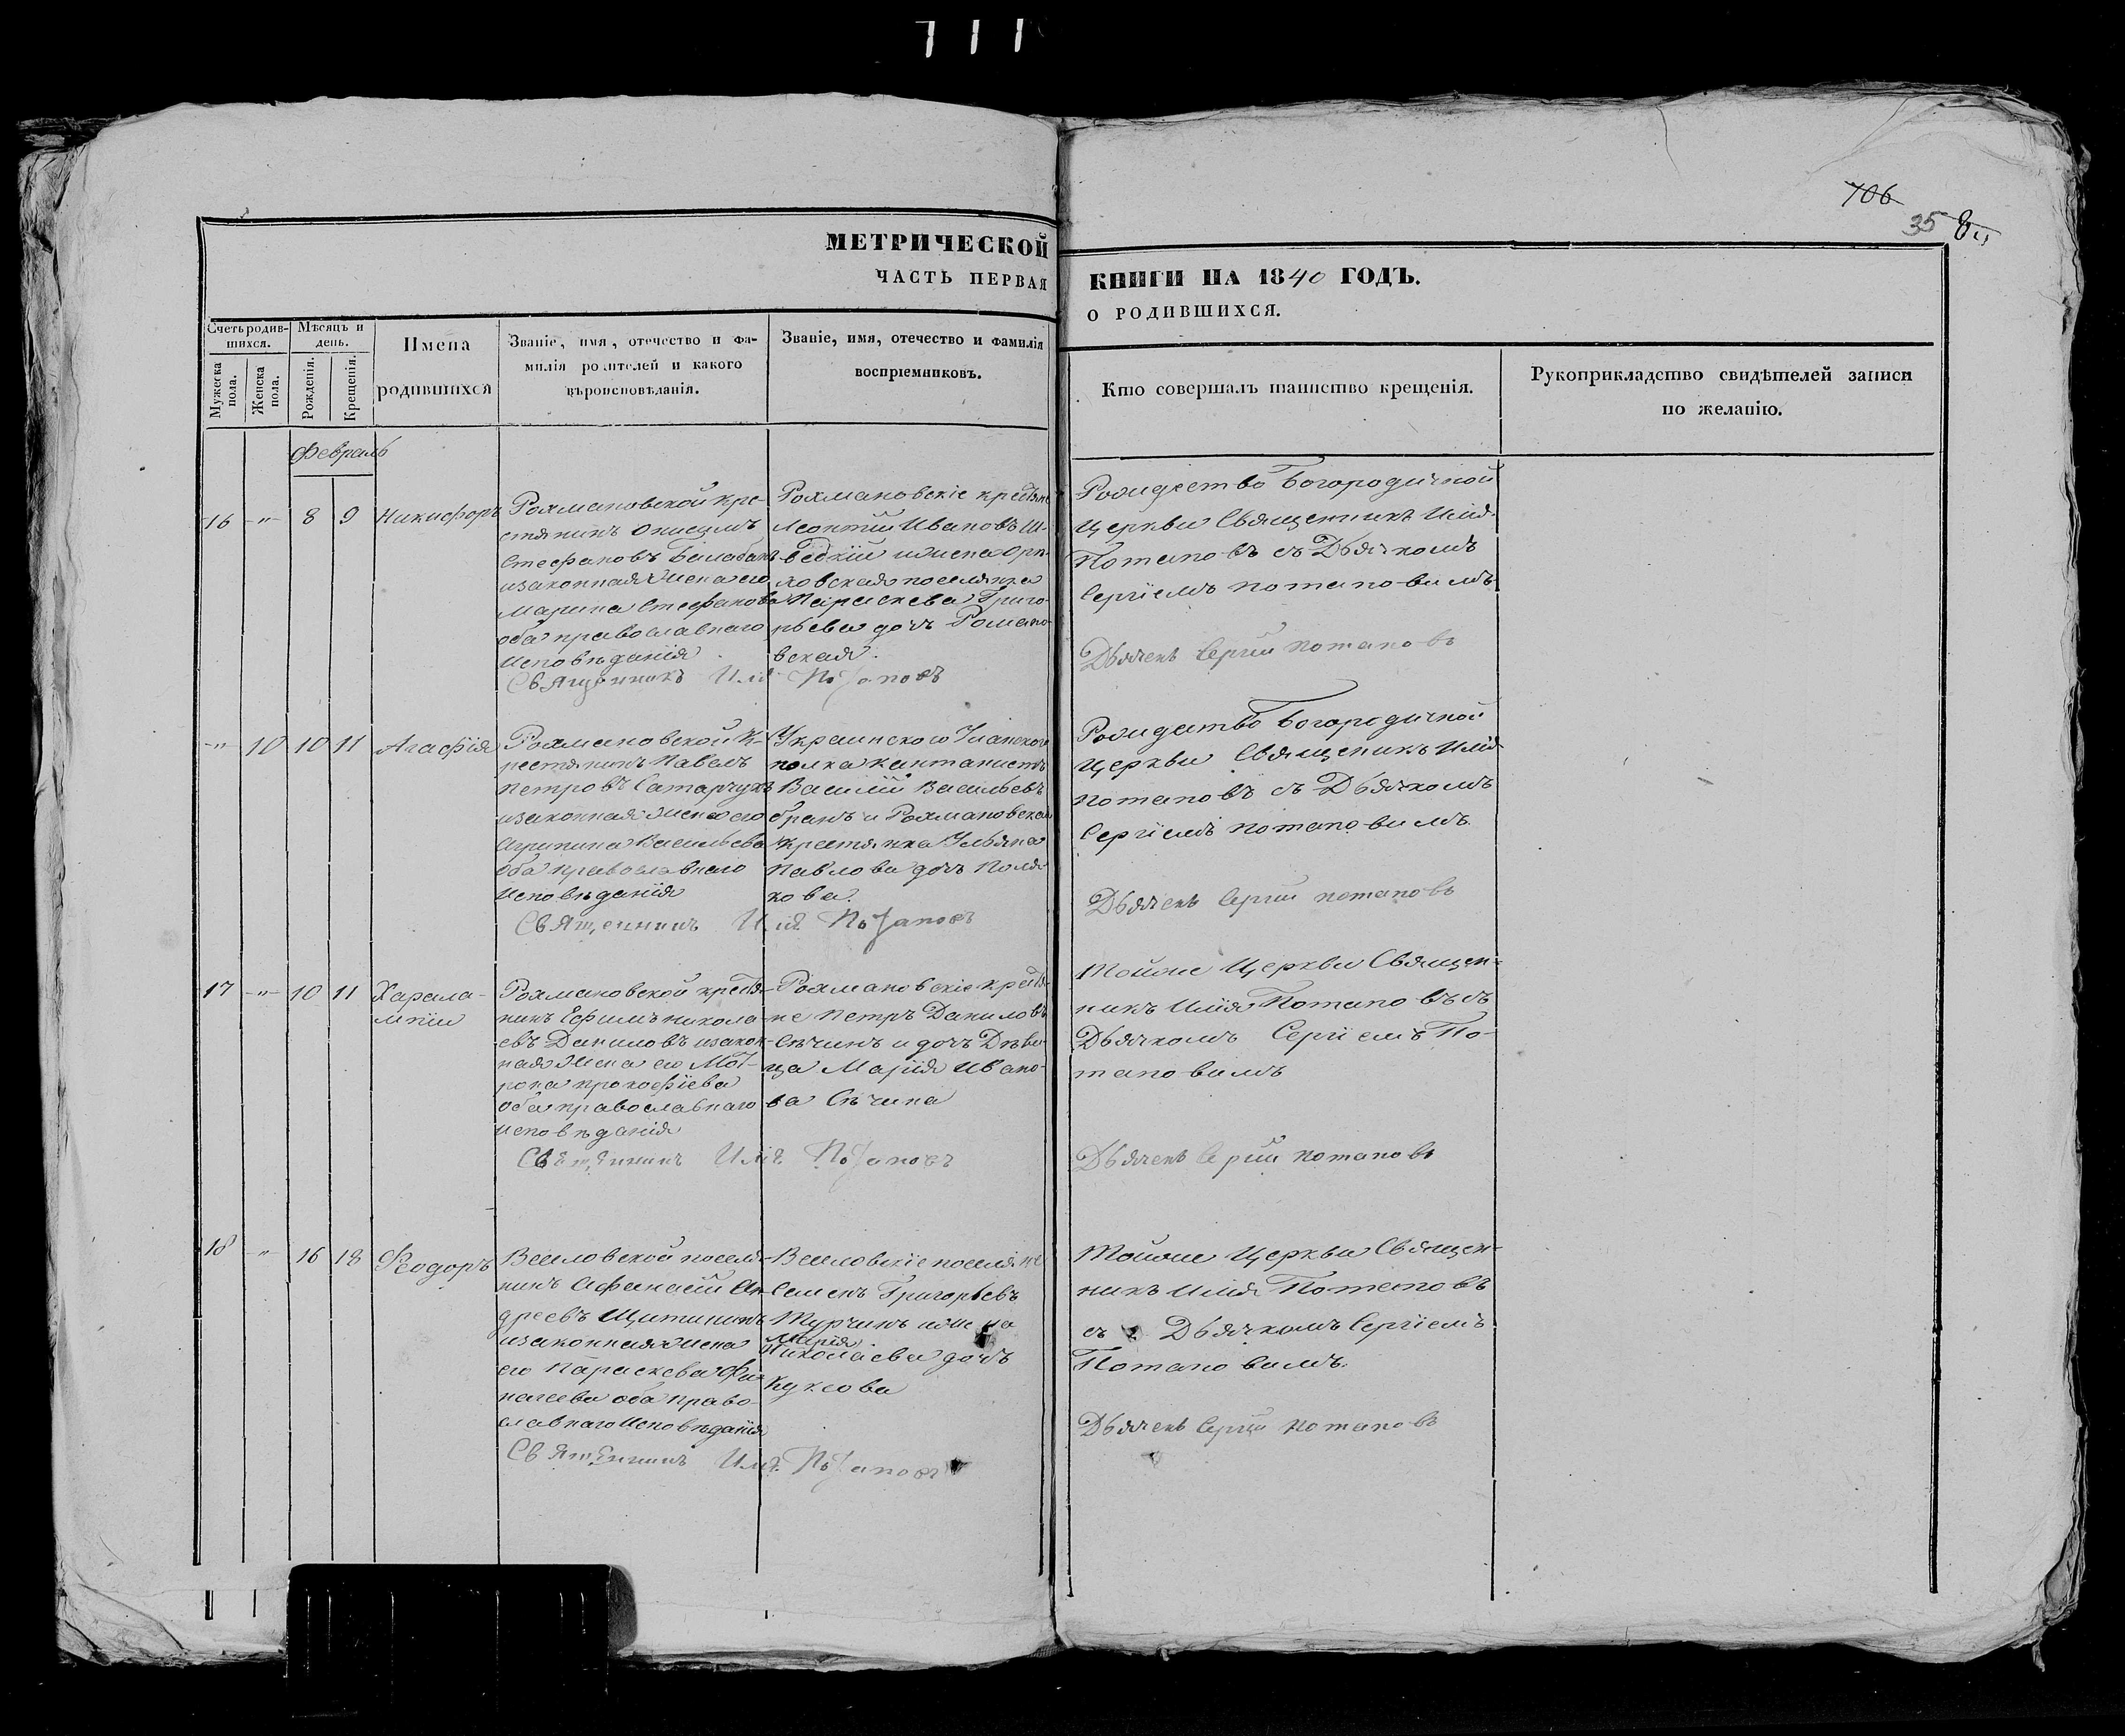 711
706
35
МЕТРИЧЕСКОЙ
ЧАСТЬ ПЕРВАЯ
КНИГИ НА 1840 ГОДЪ.
О РОДИВШИХСЯ.
Счетъ родив-
шихся.
Мужеска пола.
Женска пола.
Мѣсяцъ и
день.
Рожденія.
Крещенія.
Имена
родившихся
Званіе, имя, отечество и фа-
милія родителей и какого
вѣроисповѣданія.
Званіе, имя, отечество и фамилія
воспріемниковъ.
Кто совершалъ таинство крещенія.
Рукоприкладство свидѣтелей записи
по желанію.
Февраль
16 -"- 8 9 Никифоръ
Рохмановской кре-
стянинъ Онисимъ
Стефановъ Балабанъ
изаконная жена его
Марина Стефанова
оба православнаго
исповѣданія
Рохмановскіе крестяне
Леонтій Ивановъ
Ховская поселянка
Параскева Григо-
рьева дочъ Романо-
вская.
Священникъ Илія Потаповъ
Рождество Богородичной
Церкви Священникъ Илія
Потаповъ съ Дьячкомъ
Сергіемъ Потаповымъ
Дьячекъ Сергій Потаповъ
-"- 10 10 11 Агафія
Рохмановской К-
рестянинъ Павелъ
Петровъ Сатарчукъ
изаконная жена его
Агрипина Васильева
оба православнаго
исповѣданія
Украинского Уланского
полка кантанистъ
Василій Васильевъ
бранъ и Рохмановская
Крестянка Ульяна
Павлова дочъ Поля-
кова.
Священникъ Илія Потаповъ
Рождество Богородичной
Церкви Священикъ Илія
Потаповъ съ Дьячкомъ
Сергіемъ Потаповымъ.
Дьячекъ Сергій Потаповъ
17 -"- 10 11 Харала-
мпій
Рохмановской крестя-
нинъ Ефимъ Никола-
евъ Даниловъ изакон-
ная жена его Мот-
рона Прокофіева
оба православнаго
исповѣданія
Рохмановскіе крестя-
не Петръ Даниловъ
Сѣчинъ и дочъ Дѣви-
ца Марія Ивано-
ва Сѣчина
Священникъ Илія Потаповъ
Тойже Церкви Священ-
никъ Илія Потаповъ съ
Дьячкомъ Сергіемъ По-
таповымъ
Дьячекъ Сергій Потаповъ
18 -"- 16 18 Феодоръ
Веселовской поселя-
нинъ Афанасій Ан-
дреевъ Щитининъ
изаконная жена
его Параскева Фи-
нагеева оба право-
славнаго исповѣданія
Веселовскіе поселяне
Семенъ Григорьевъ
Турчинъ
Марія
Николаева дочъ
Куксова
Священникъ Илія Потаповъ
Тойже Церкви Священ-
никъ Илія Потаповъ
съ Дьячкомъ Сергіемъ
Потаповымъ.
Дьячекъ Сергій Потаповъ